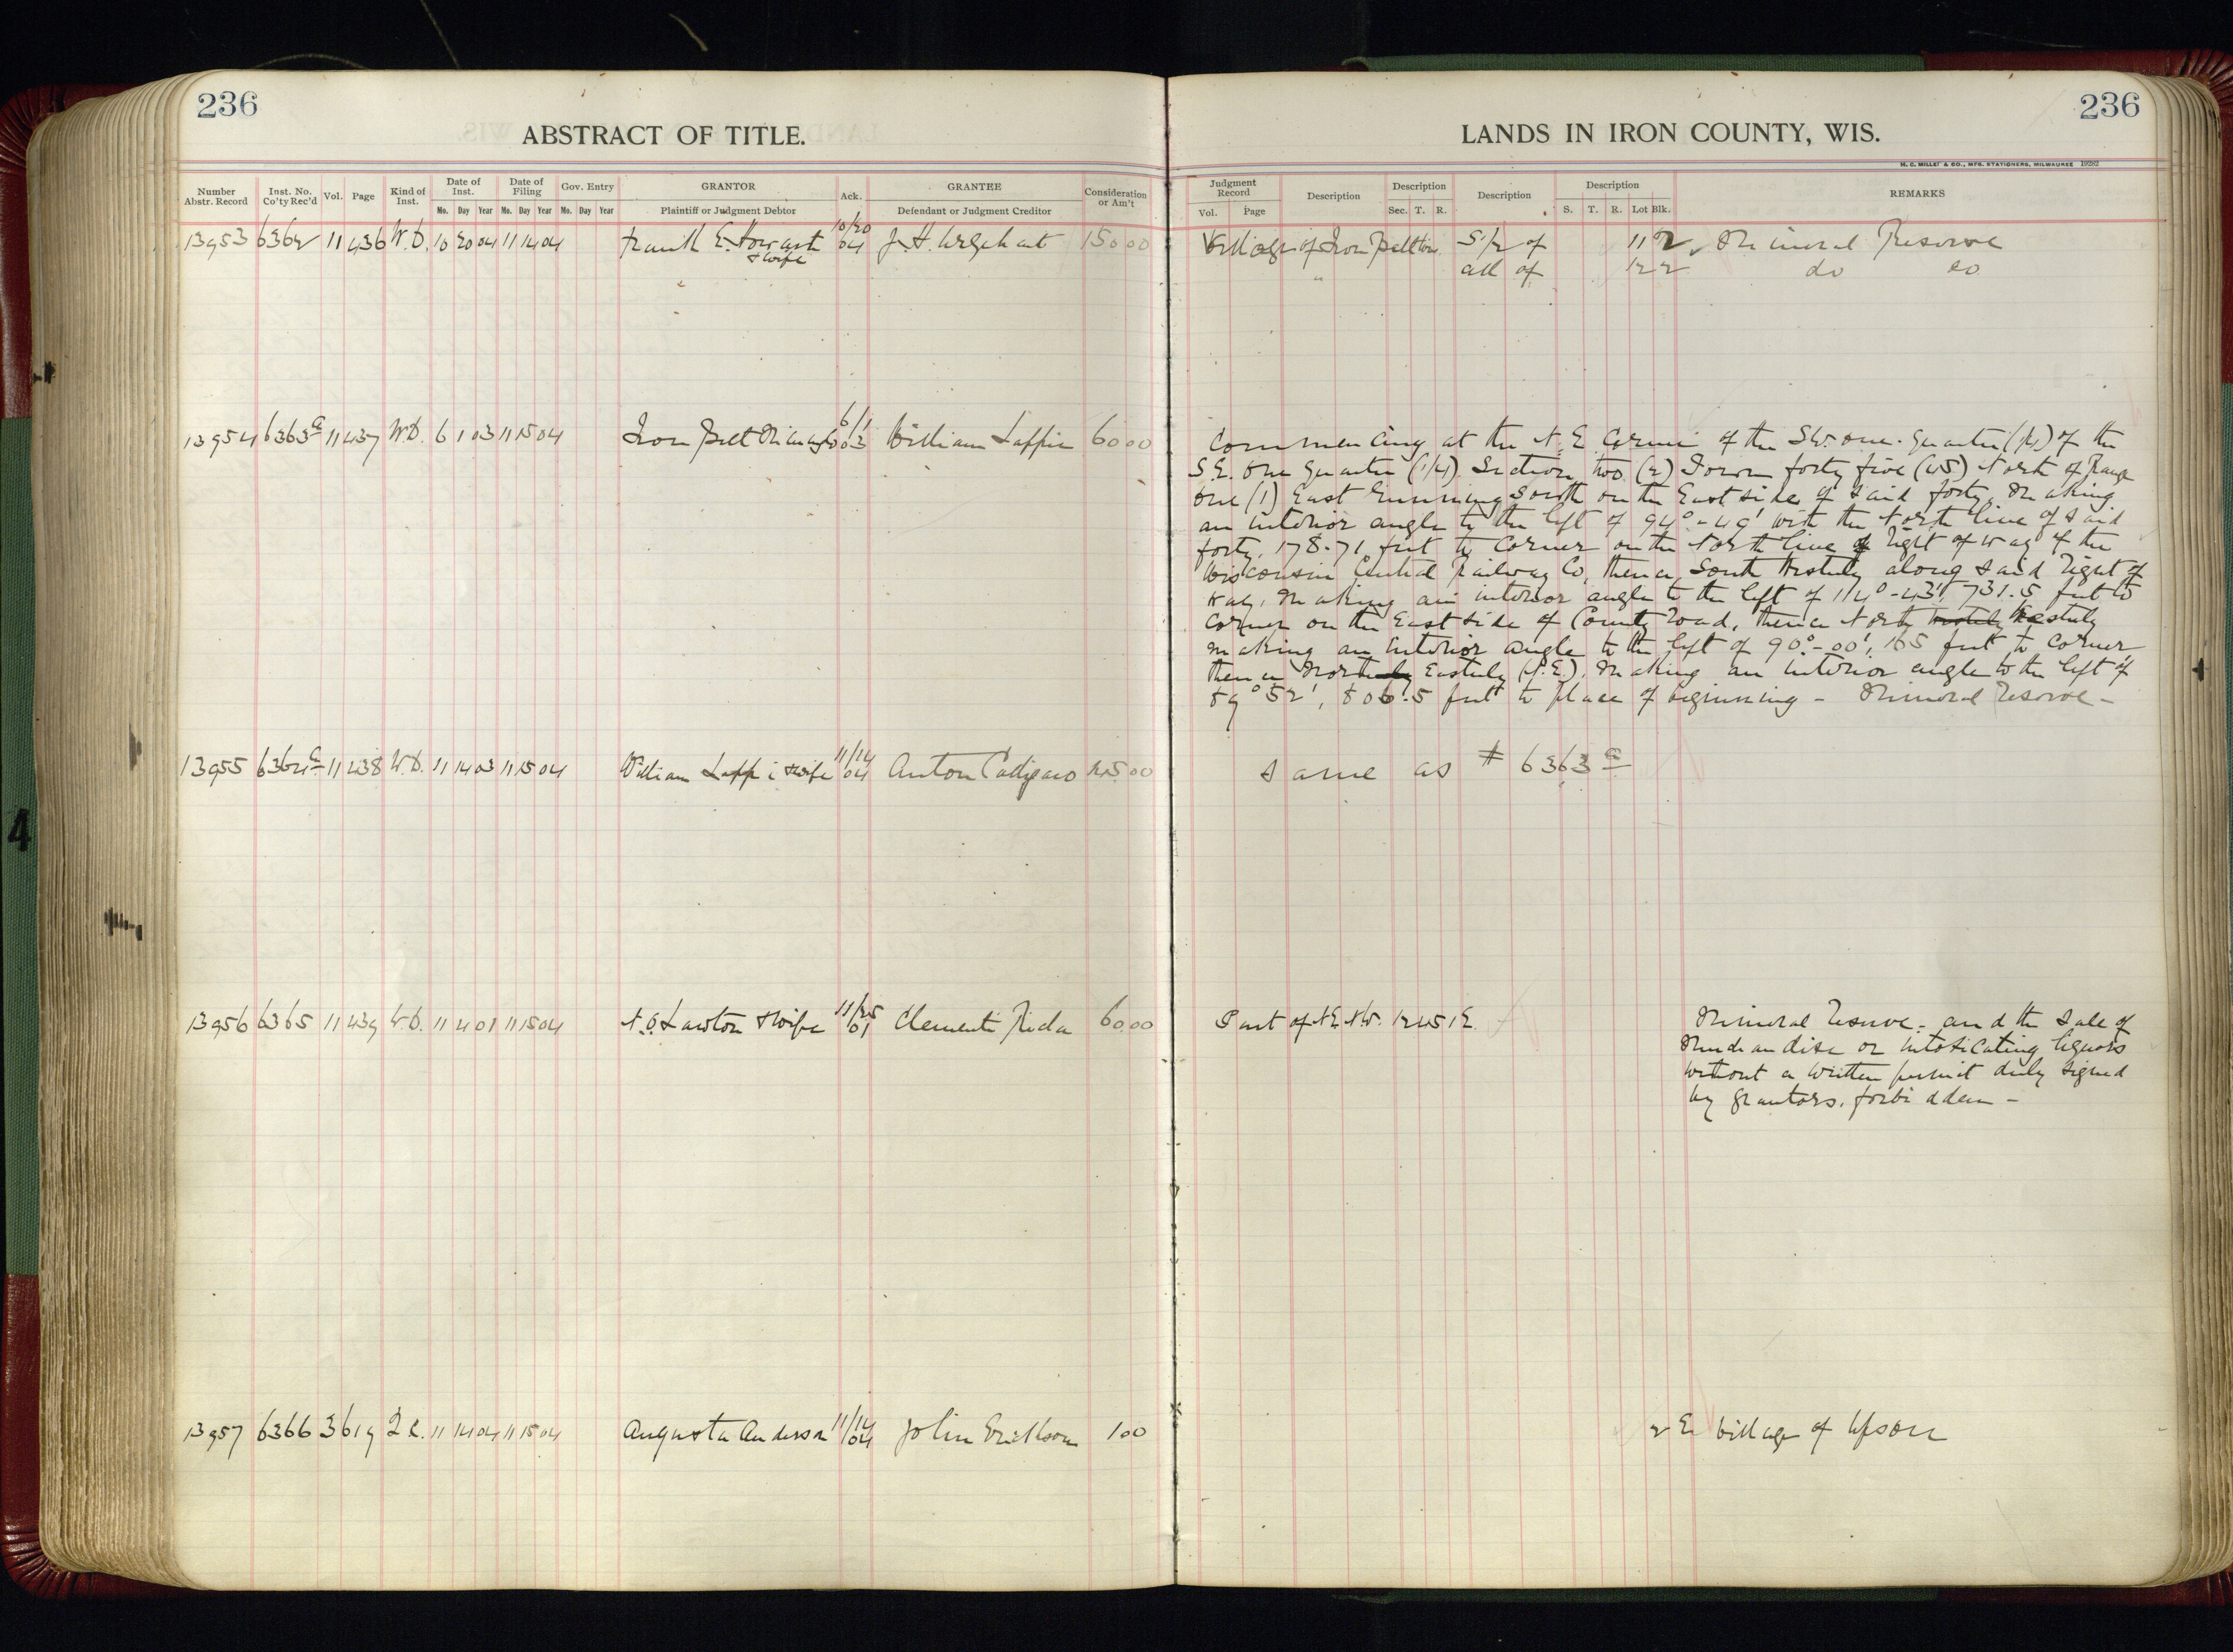 236
ABSTRACT OF TITLE.
Number Abstr. Record Inst. No. Co'ty Rec'd Vol. Page Kind of Inst. Date of Inst. Mo. Day Year Date of Filing Mo. Day Year Gov. Entry Mo. Day Year GRANTOR Plaintiff or Judgment Debtor Ack. GRANTEE Defendant or Judgment Creditor Consideration or Am't
13953 6362 11 436 W.D. 10 20 04 11 14 04 Frank E. Howart & wife 10/20 04 J. H. 150 00
13954 6363a 11 437 W.D. 6 1 03 11 15 04 Iron Belt Mining Co 6/1 03 William Laffin 60 00
13955 6364a 11 438 W.D. 11 14 03 11 15 04 William & wife 11/14 04 Anton 00
13956 6365 11 439 W.D. 11 4 01 11 15 04 N.O. Lawton & wife 11/25 01 Clementi 60.00
13957 6366 3 619 Q.C. 11 14 04 11 15 04 Augusta Anderson 11/14 04 John Erickson 1 00
LANDS IN IRON COUNTY, WIS.
236
H. C. MILLER & CO., MFG. STATIONERS, MILWAUKEE 19282
Judgment Record Vol. Page Description Description Sec. T. R. Description Description S. T. R. Lot Blk. REMARKS
Village of Iron Belton S 1/2 of 11 2 Mineral Reserve
" all of 12 2 do do
Commencing at the N.E. Corner of the S.W. one-quarter (1/4) of the
S.E. One Quarter (1/4) Section two (2) Town forty five (45) North of Range
One (1) East Running South on the East side of said forty, making
an interior angle to the left of 94°-49' with the North line of said
forty, 178.71 feet to corner on the North line of Right of way of the
Wisconsin Central Railway Co, thence South Westerly along said Right of
way, making an interior angle to the left of 114°-43', 731.5 feet to
corner on the East side of County Road, thence North westerly Westerly
making an interior angle to the left of 90°-00', 165 feet to corner
thence Northerly Easterly (N.E.), making an interior angle to the left of
89°52', 806.5 feet to place of beginning - Mineral Reserve -
Same as # 6363a
Part of N.E. N.W. 12 45 1E. Mineral Reserve - and the sale of
Merchandise or intoxicating liquors
without a written permit duly signed
by grantors, forbidden -
2 E Village of Upson
4